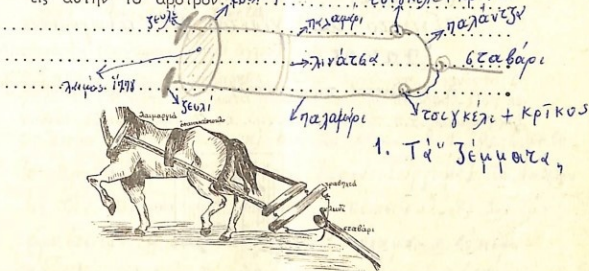 εἰς αὐτὴν τὸ ἄροτρον
ζευλί
παλαμάρι
παλάντζα
λινάτσα
σταβάρι
λαιμὸς ἵππου
ζευλί
παλαμάρι
τσιγκέλι + κρίκος
1. Τὰ "ζέμματα"
λαιμαργιά
σταβάρι